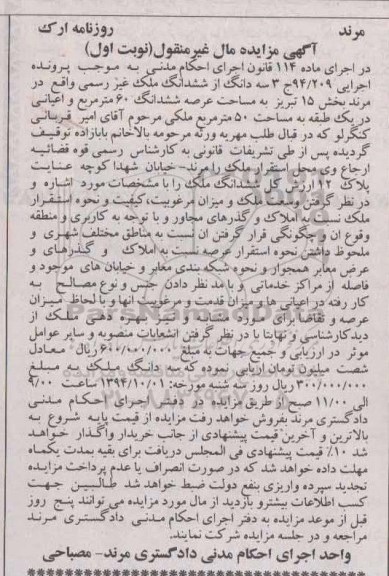 مرند روزنامه ارک
آگهی مزایده مال غیرمنقول(نوبت اول)
در اجرای ماده ۱۱۴ قانون اجرای احکام مدنی به موجب پرونده
اجرایی ۹۴/۲۰۹ج ۳ سه دانگ از ششدانگ ملک غیر رسمی واقع در
مرند بخش ۱۵ تبریز به مساحت عرصه ششدانگ ۶۰ مترمربع و اعیانی
در یک طبقه به مساحت ۵۰ مترمربع ملکی مرحوم آقای امیر قربانی
کنگرلو که در قبال طلب مهریه ورثه مرحومه بالاخانم بابازاده توقیف
گردیده پس از طی تشریفات قانونی به کارشناس رسمی قوه قضائیه
ارجاع وی محل استقرار ملک را مرند- خیابان شهدا کوچه عنایت
پلاک ۱۲ ارزش کل ششدانگ ملک را با مشخصات مورد اشاره و
در نظر گرفتن وسعت ملک و میزان مرغوبیت،کیفیت و نحوه استقرار
ملک نسبت به املاک و گذرهای مجاور و با توجه به کاربری و منطقه
وقوع ان و چگونگی قرار گرفتن ان نسبت به مناطق مختلف شهری و
ملحوظ داشتن نحوه استقرار عرصه نسبت به املاک و گذرهای و
عرض معابر همجوار و نحوه شبکه بندی معابر و خیابان های موجود و
فاصله از مراکز خدماتی و با مد نظر دادن جنس و نوع مصالح به
کار رفته در اعیانی ها و میزان قدمت و مرغوبیت انها و با لحاظ میزان
عرصه و تقاضا برای مورد مشابه و سایر بهره دهی ملک از
دیدکارشناسی و نهایتا با در نظر گرفتن انشعابات منصوبه و سایر عوامل
موثر در ارزیابی و جمیع جهات به مبلغ ۶۰۰/۰۰۰/۰۰۰ ریال معادل
شصت میلیون تومان ارزیابی نموده که سه دانگ ملک به مبلغ
۳۰۰/۰۰۰/۰۰۰ ریال روز سه شنبه مورخه: ۱۳۹۴/۱۰/۰۱ ساعت ۹/۰۰
الی ۱۱/۰۰ صبح از طریق مزایده در دفتر اجرای احکام مدنی
دادگستری مرند بفروش خواهد رفت مزایده از قیمت پایه شروع به
بالاترین و آخرین قیمت پیشنهادی از جانب خریدار واگذار خواهد
شد ۱۰٪ قیمت پیشنهادی فی المجلس دریافت برای بقیه بمدت یکماه
مهلت داده خواهد شد که در صورت انصراف یا عدم پرداخت مزایده
تجدید سپرده واریزی بنفع دولت ضبط خواهد شد طالبین جهت
کسب اطلاعات بیشترو بازدید از مال مورد مزایده می توانند پنج روز
قبل از موعد مزایده به دفتر اجرای احکام مدنی دادگستری مرند
مراجعه و در جلسه مزایده شرکت نمایند.
واحد اجرای احکام مدنی دادگستری مرند- مصباحی